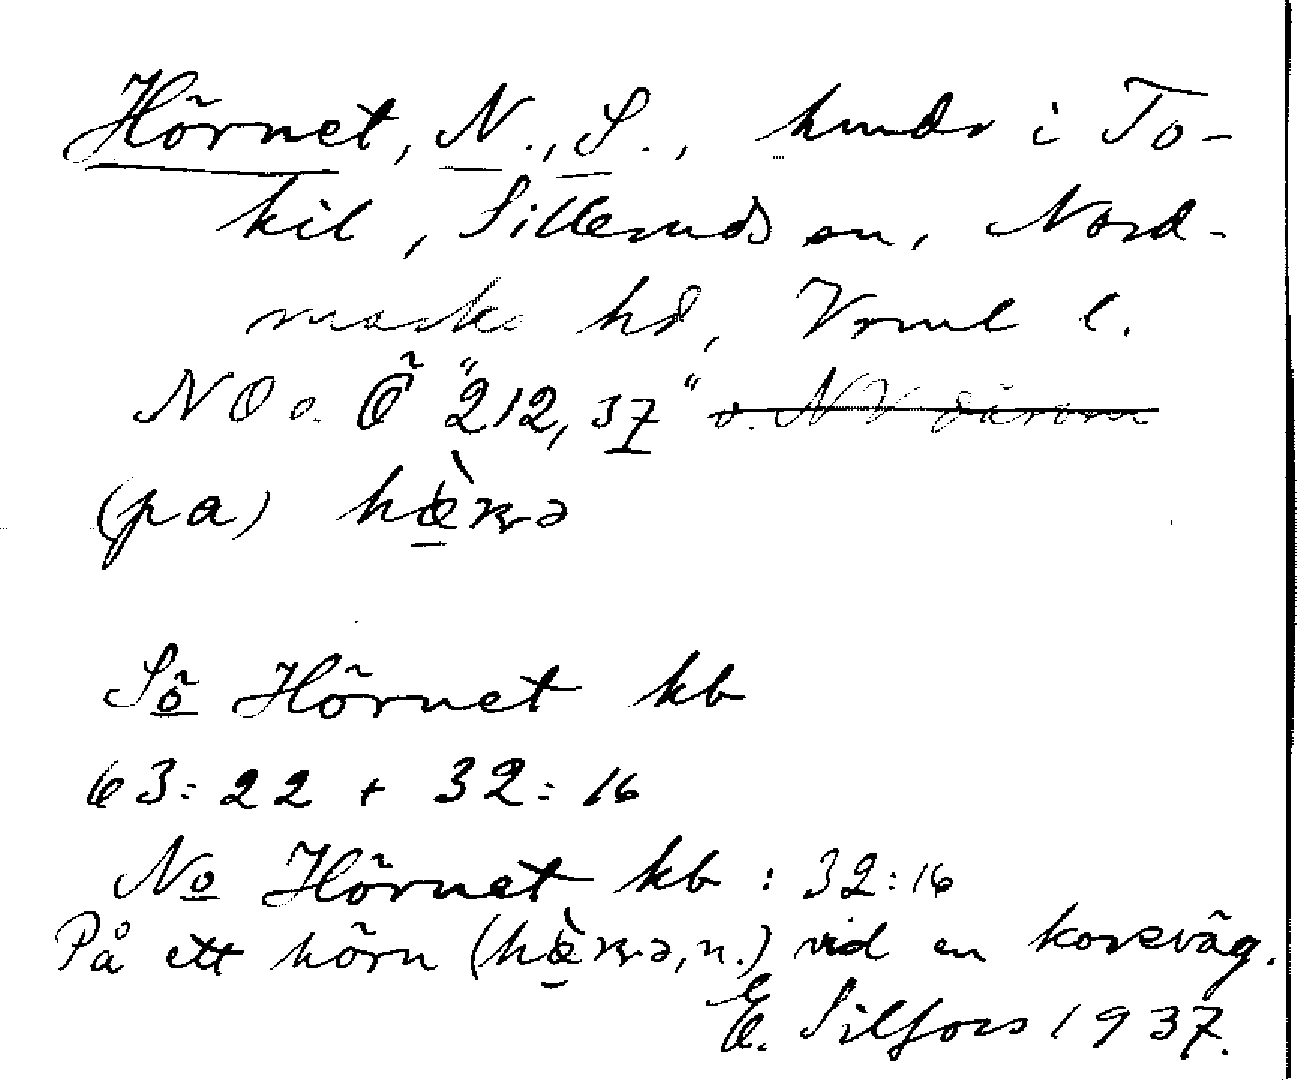 Hörnet, N., S., hmdr i To-
kil, Silleruds sn, Nord-
marks hd, Vrml l.
NO o. Ö "212,37" o. NV därom
(pa) hæ̀ɳə
Sö Hörnet kb
63:22 + 32:16
No Hörnet kb : 32:16
På ett hörn (hæ̀ɳə, n.) vid en korsväg.
E. Silfors 1937.